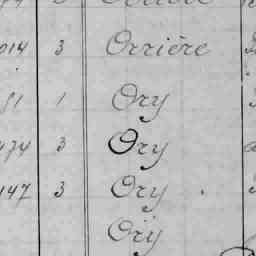 014 3 Orrière
81 1 Ory
474 3 Ory
147 3 Ory
Orÿ